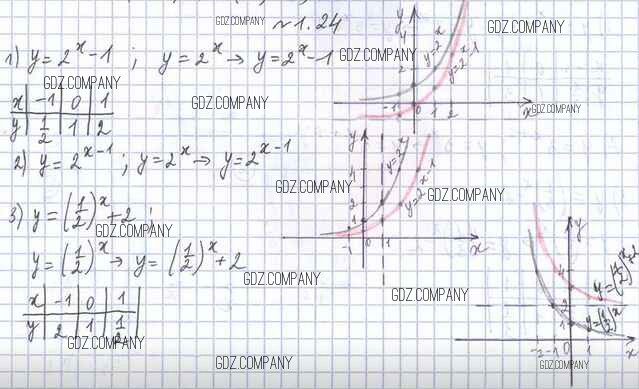 №1.24
1) y = 2^x - 1 ; y = 2^x → y = 2^x - 1
x | -1 | 0 | 1
y | 1/2 | 1 | 2
2) y = 2^(x-1) ; y = 2^x → y = 2^(x-1)
3) y = (1/2)^x + 2 ;
y = (1/2)^x → y = (1/2)^x + 2
x | -1 | 0 | 1
y | 2 | 1 | 1/2
y
4
2
-1 0 1 2 x
y=2^x
y=2^x-1
y
4
2
1
-1 0 1 x
y=2^x
y=2^(x-1)
y
4
2
1
-2 -1 0 1 x
y=(1/2)^x+2
y=(1/2)^x
GDZ.COMPANY
GDZ.COMPANY
GDZ.COMPANY
GDZ.COMPANY
GDZ.COMPANY
GDZ.COMPANY
GDZ.COMPANY
GDZ.COMPANY
GDZ.COMPANY
GDZ.COMPANY
GDZ.COMPANY
GDZ.COMPANY
GDZ.COMPANY
GDZ.COMPANY